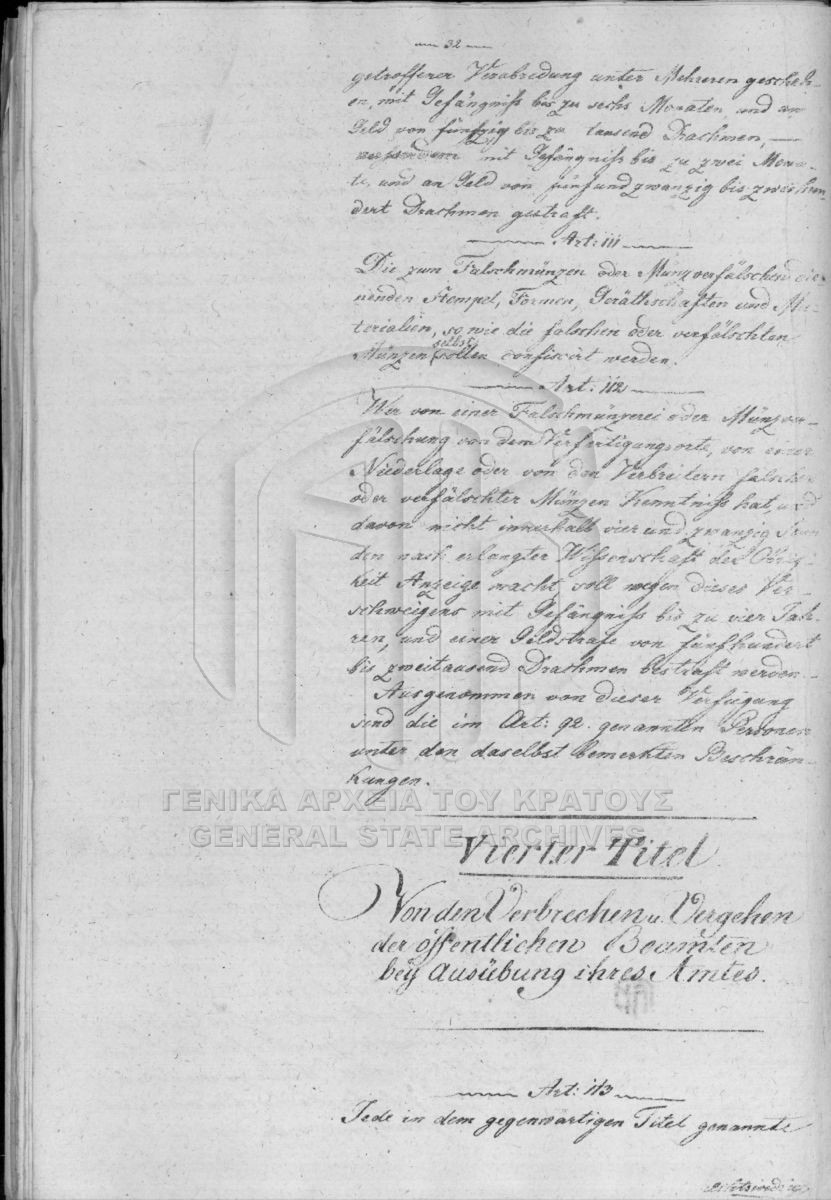 32
getroffener Verabredung unter Mehreren gescheh-
en, mit Gefängniß bis zu sechs Monaten und an
Geld von fünfzig bis zu tausend Drachmen,
mit Gefängniß bis zu zwei Mona-
te, und an Geld von fünfundzwanzig bis zweihun-
dert Drachmen gestraft.
Art: 111
Die zum Falschmünzen oder Münzverfälschen die-
nenden Stempel, Formen, Geräthschaften und Ma-
terialien, so wie die falschen oder verfälschten
Münzen selbst sollen confiscirt werden.
Art: 112
Wer von einer Falschmünzerei oder Münzver-
fälschung von dem Verfertigungsorte, von einer
Niederlage oder von den Verbreitern falscher
oder verfälschter Münzen Kenntniß hat, und
davon nicht innerhalb vier und zwanzig Stun-
den nach erlangter Wissenschaft der Obrig-
keit Anzeige macht, soll wegen dieses Ver-
schweigens mit Gefängniß bis zu vier Jah-
ren, und einer Geldstrafe von fünfhundert
bis zweitausend Drachmen bestraft werden.
Ausgenommen von dieser Verfügung
sind die im Art: 92. genannten Personen
unter den daselbst bemerkten Beschrän-
kungen.
ΓΕΝΙΚΑ ΑΡΧΕΙΑ ΤΟΥ ΚΡΑΤΟΥΣ
GENERAL STATE ARCHIVES
Vierter Titel
Von den Verbrechen u. Vergehen
der öffentlichen Beamten
bey Ausübung ihres Amtes.
Art: 113
Jede in dem gegenwärtigen Titel genannte